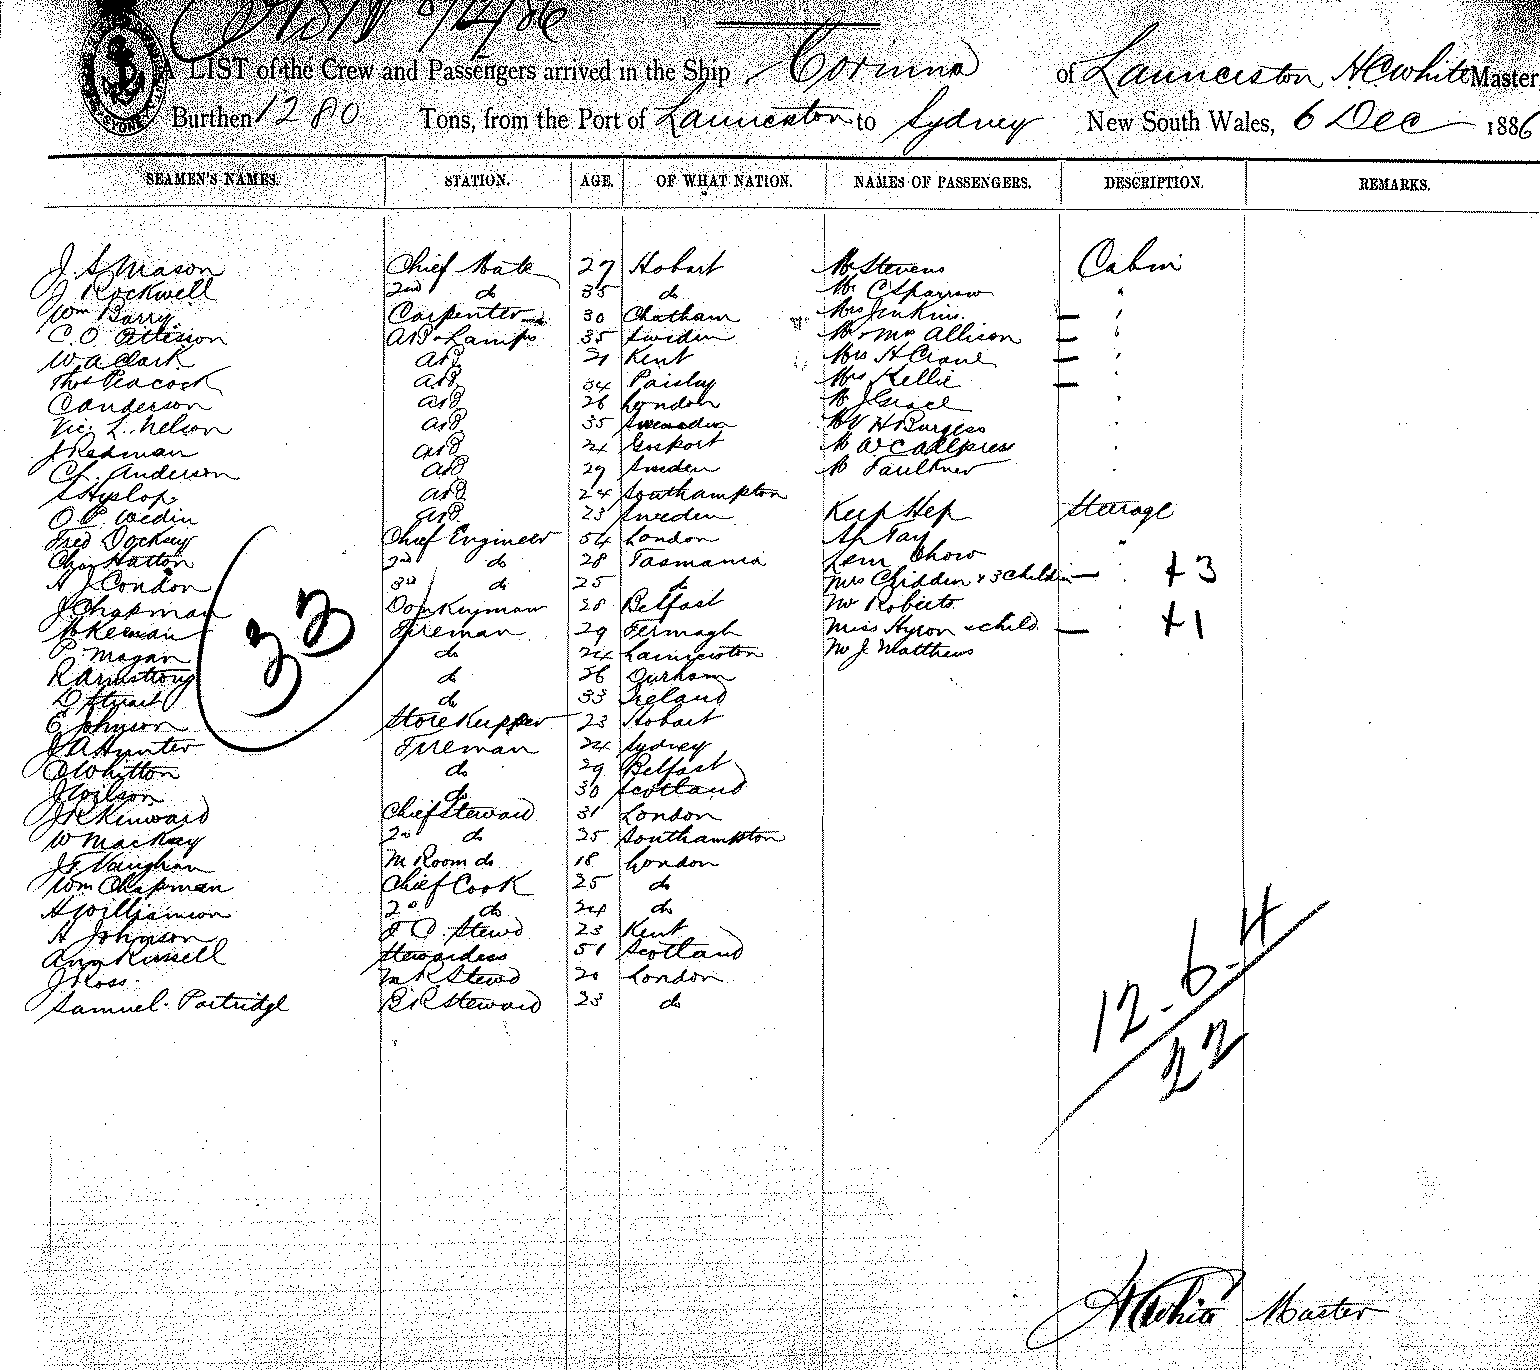 A LIST of the Crew and Passengers arrived in the Ship Corinna of Launceston H C White Master
Burthen 1280 Tons, from the Port of Launceston to Sydney New South Wales, 6 Dec 1886
SEAMEN'S NAMES. STATION. AGE. OF WHAT NATION. NAMES OF PASSENGERS. DESCRIPTION. REMARKS.
J. S. Mason Chief Mate 27 Hobart Mr Stevens Cabin
J Rockwell 2nd do 35 do Mr C Sparrow "
Wm Barry Carpenter 30 Chatham Mrs Jenkins — "
C. O. AB & Lamps 35 Sweden Mr & Mrs Allison — "
W A Clark AB 21 Kent Mrs H Crane — "
Thos Peacock AB 34 Paisley Mrs Kellie — "
C Anderson AB 26 London Mr J Grace "
Vic. L. Nelson AB 35 Sweeden H Burgess "
J Redman AB 24 Gosport Mr W C "
Ch. Anderson AB 29 Sweden Mr Faulkner
S Hyslop AB 24 Southampton
O. P. Wedin AB 23 Sweden Keep Hep Sturage
Fred Docksey Chief Engineer 54 London Ah Tay
Chas Hatton 2nd do 28 Tasmania Lem Chow "
A J Condon 3rd do 25 do Mrs Chidden & 3 Children — " +3
J Chapman Donkeyman 28 Belfast Mr Roberts "
McKernan Fireman 29 Fermagh Miss Hyron & child — " +1
P Magan do 24 Launceston Mr J Matthews "
R Armstrong do 26 Durham
D Stuart do 33 Ireland
E Johnson Store Keepper 23 Hobart
J A Hunter Fireman 24 Sydney
C Whitton do 29 Belfast
J Wilson do 30 Scotland
J R Kenward Chief Steward 31 London
W Mackay 2nd do 25 Southampton
J F Vaughan M Room do 18 London
Wm Chapman Chief Cook 25 do
H Williamson 2nd do 24 do
A Johnson F C. Stewd 23 Kent
Ann Russell Stewardess 51 Scotland
J Ross M R Stewd 20 London
Samuel Partridge B R Steward 23 do
33
12-6-4
22
H C White Master